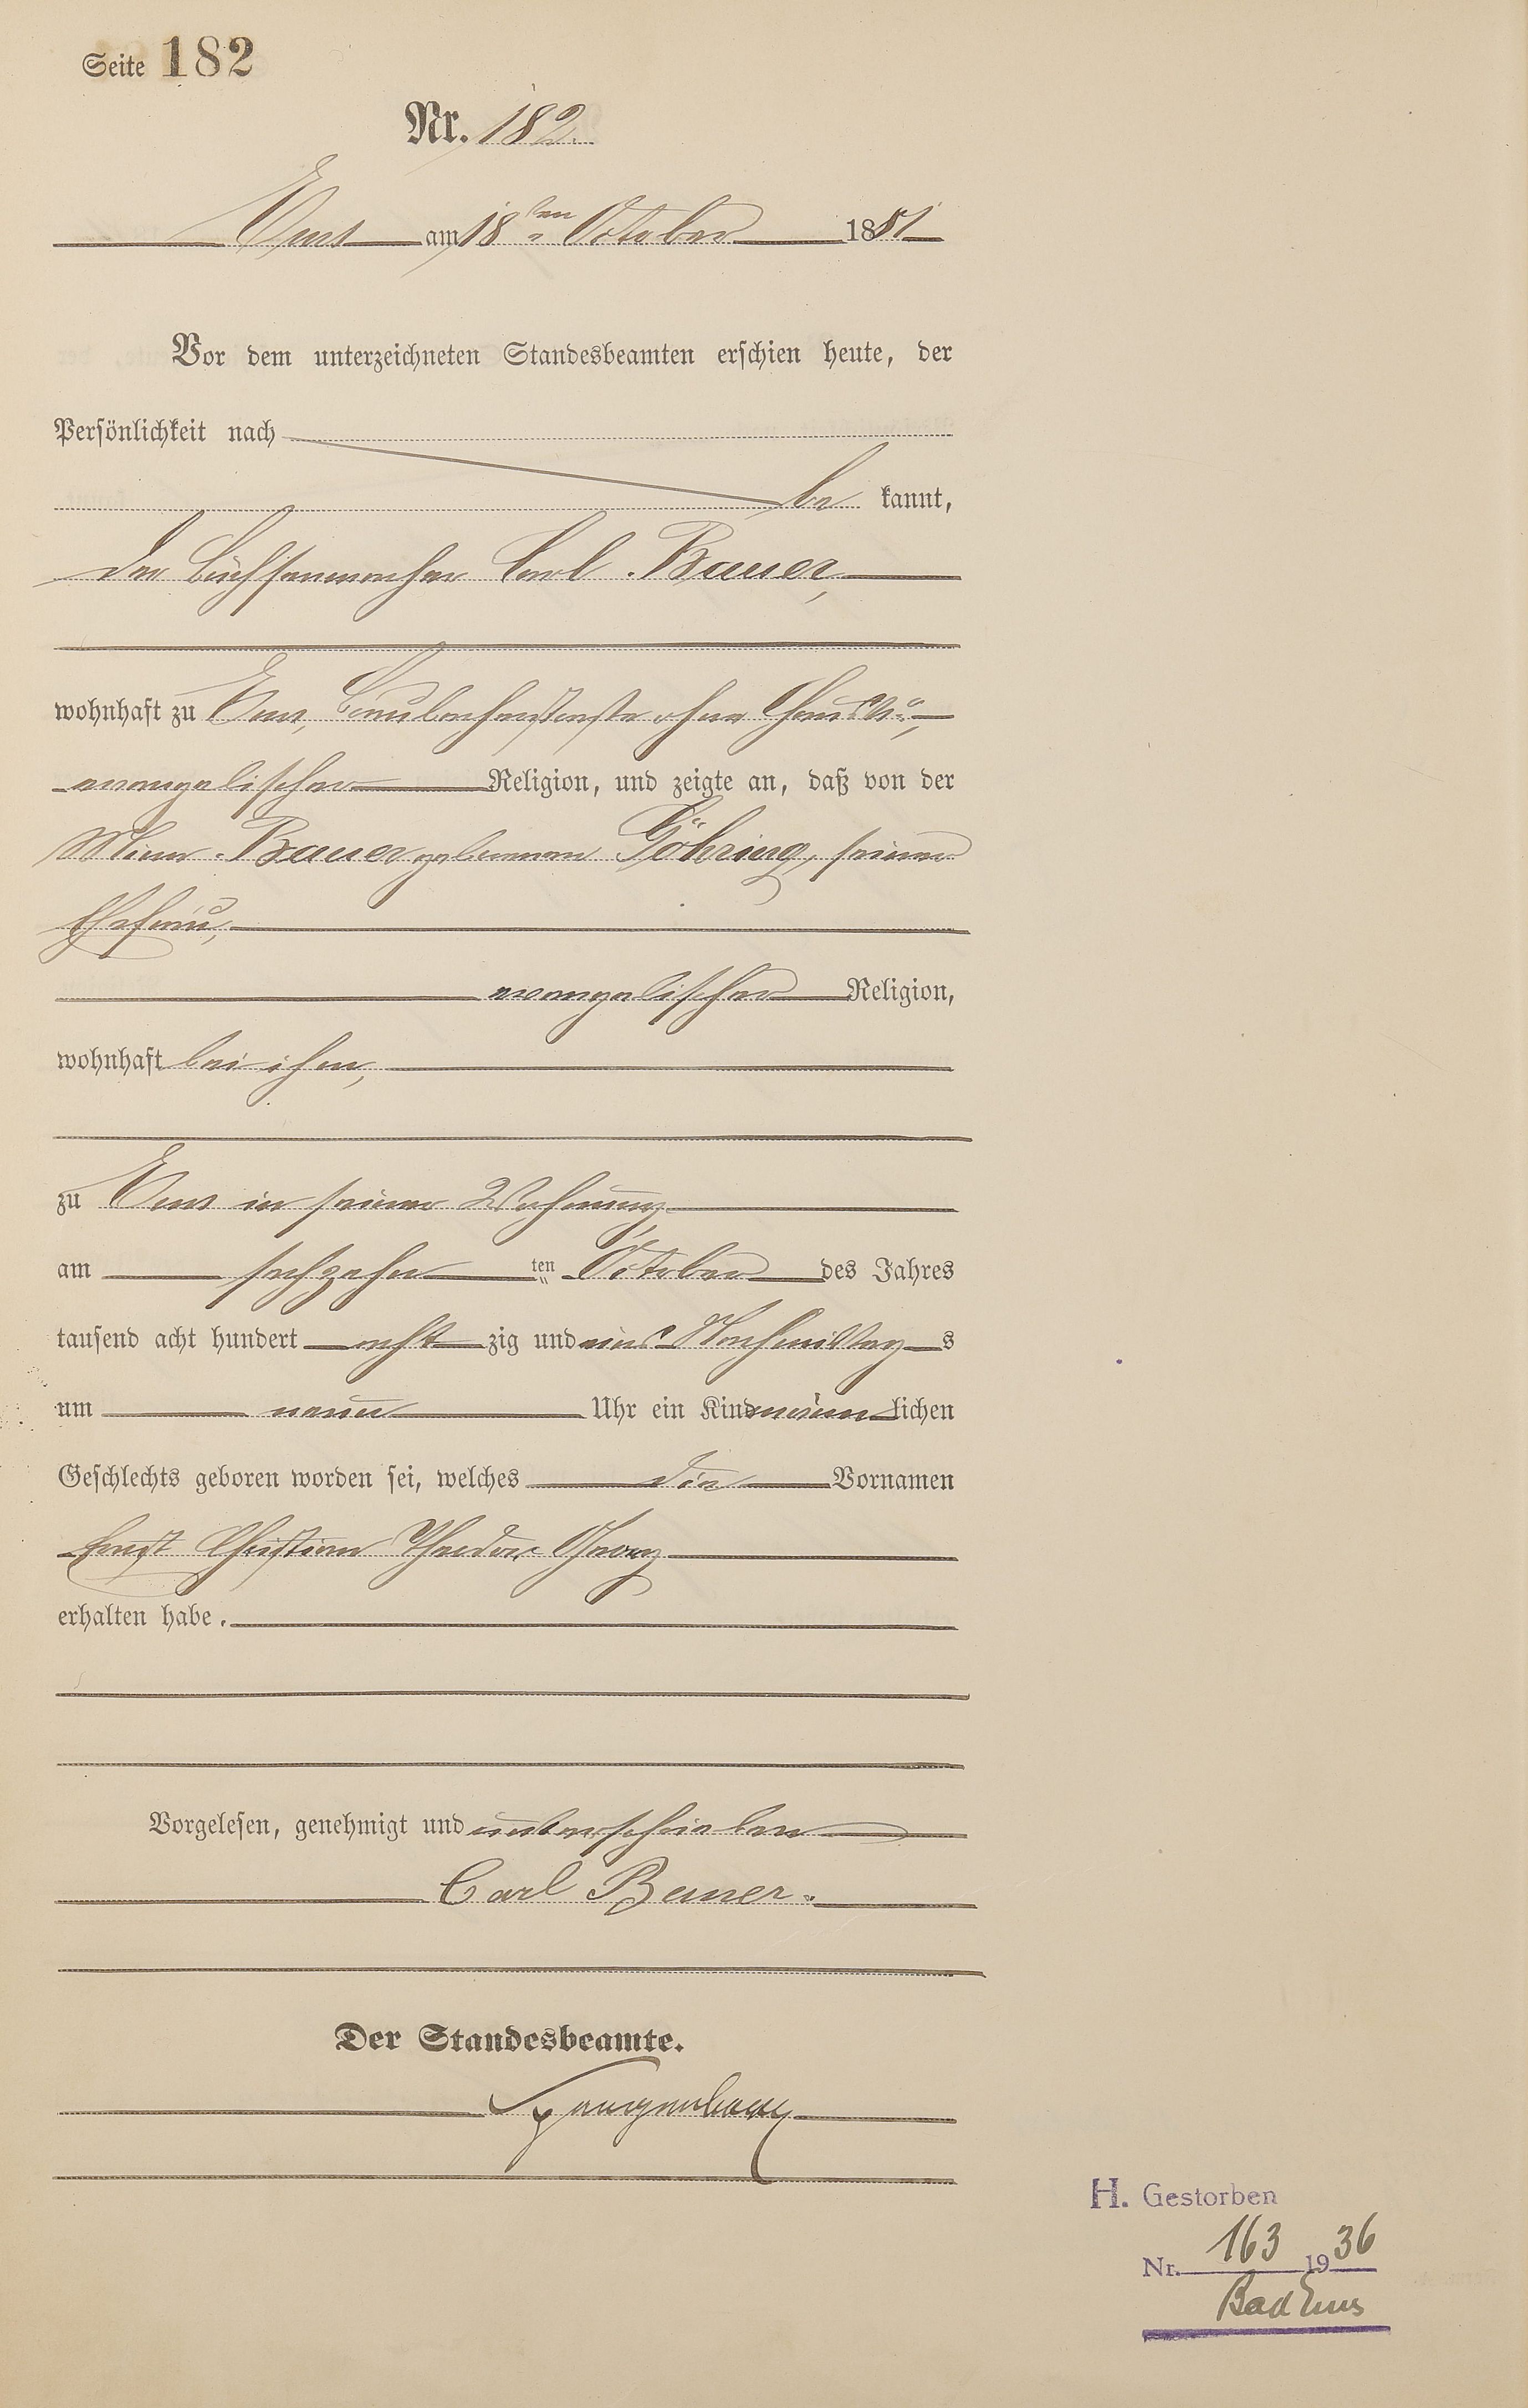 Seite 182
Nr. 182.
Ems am 18ten October 1881
Vor dem unterzeichneten Standesbeamten erschien heute, der
Persönlichkeit nach
be kannt,
der Büchsenmacher Carl Bauer,
wohnhaft zu Ems, ohne Haus N°,
evangelischer Religion, und zeigte an, daß von der
Mina Bauer geborenen Göhring, seiner
Ehefrau,
evangelischer Religion,
wohnhaft bei ihm,
zu Ems in seiner Wohnung,
am sechzehn ten October des Jahres
tausend acht hundert acht zig und eins Nachmittag s
um neun Uhr ein Kind männ lichen
Geschlechts geboren worden sei, welches die Vornamen
Ernst Christian Theodor Georg
erhalten habe.
Vorgelesen, genehmigt und unterschrieben
Carl Bauer.
Der Standesbeamte.
H. Gestorben
Nr. 163 1936
Bad Ems